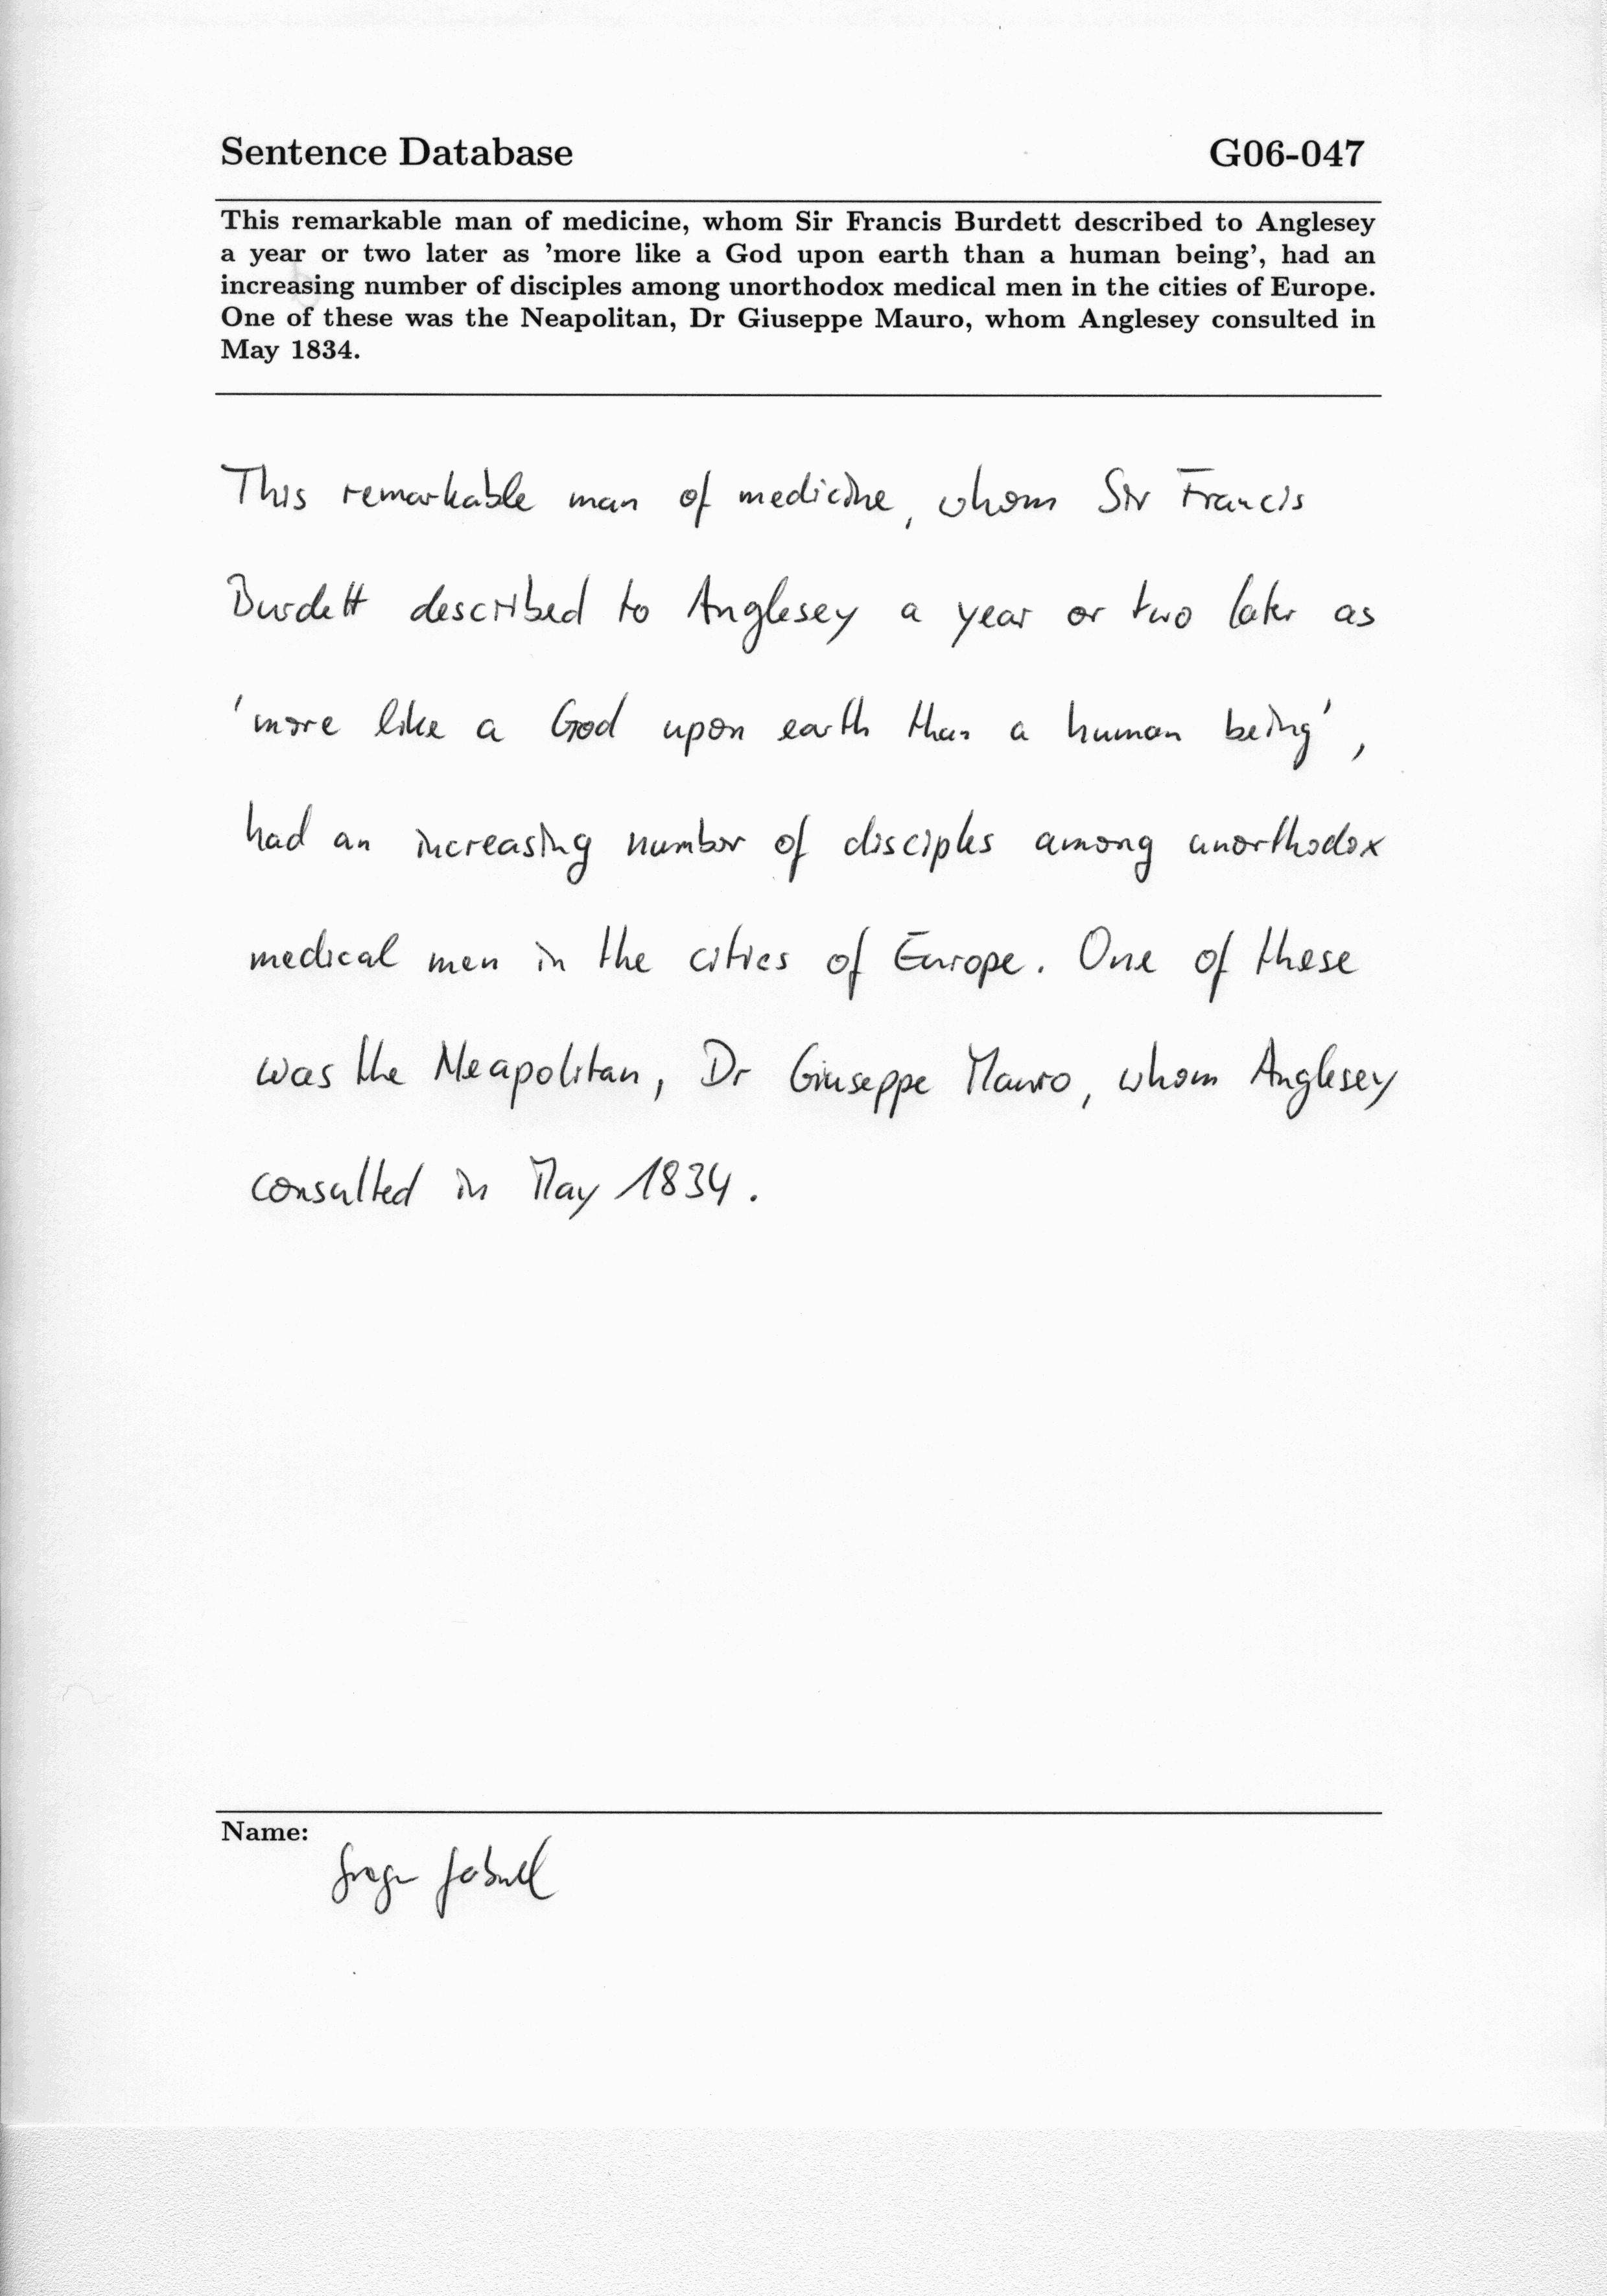 Sentence Database G06-047
This remarkable man of medicine, whom Sir Francis Burdett described to Anglesey
a year or two later as 'more like a God upon earth than a human being', had an
increasing number of disciples among unorthodox medical men in the cities of Europe.
One of these was the Neapolitan, Dr Giuseppe Mauro, whom Anglesey consulted in
May 1834.
This remarkable man of medicine, whom Sir Francis
Burdett described to Anglesey a year or two later as
'more like a God upon earth than a human being',
had an increasing number of disciples among unorthodox
medical men in the cities of Europe. One of these
was the Neapolitan, Dr Giuseppe Mauro, whom Anglesey
consulted in May 1834.
Name: